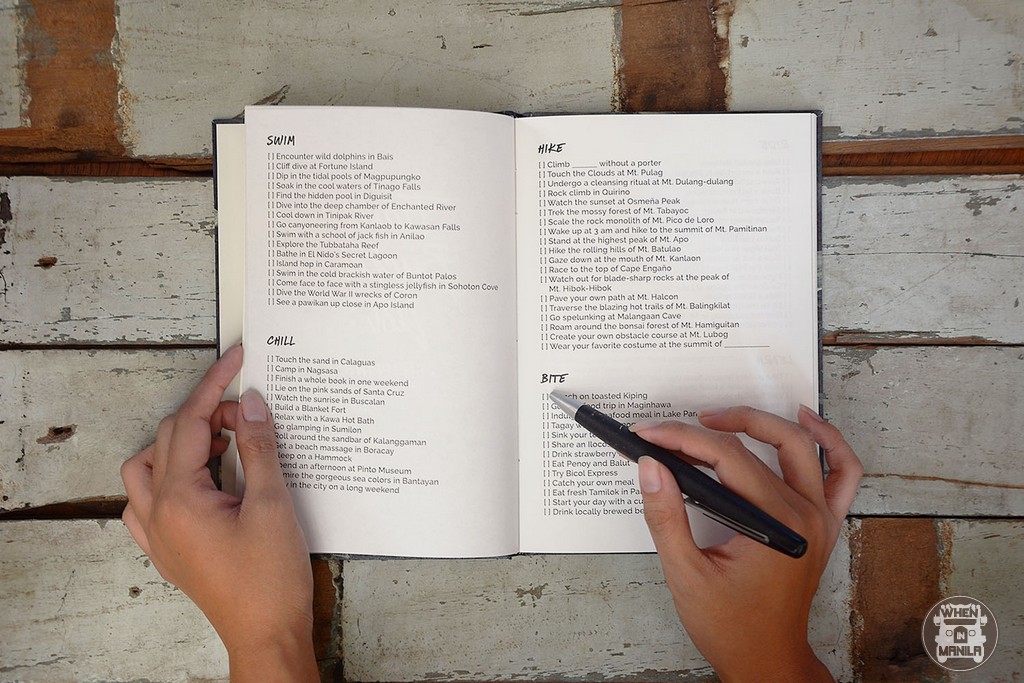 SWIM
[ ] Encounter wild dolphins in Bais
[ ] Cliff dive at Fortune Island
[ ] Dip in the tidal pools of Magpupungko
[ ] Soak in the cool waters of Tinago Falls
[ ] Find the hidden pool in Diguisit
[ ] Dive into the deep chamber of Enchanted River
[ ] Cool down in Tinipak River
[ ] Go canyoneering from Kanlaob to Kawasan Falls
[ ] Swim with a school of jack fish in Anilao
[ ] Explore the Tubbataha Reef
[ ] Bathe in El Nido's Secret Lagoon
[ ] Island hop in Caramoan
[ ] Swim in the cold brackish water of Buntot Palos
[ ] Come face to face with a stingless jellyfish in Sohoton Cove
[ ] Dive the World War II wrecks of Coron
[ ] See a pawikan up close in Apo Island
CHILL
[ ] Touch the sand in Calaguas
[ ] Camp in Nagsasa
[ ] Finish a whole book in one weekend
[ ] Lie on the pink sands of Santa Cruz
[ ] Watch the sunrise in Buscalan
[ ] Build a Blanket Fort
Relax with a Kawa Hot Bath
Go glamping in Sumilon
Roll around the sandbar of Kalanggaman
Get a beach massage in Boracay
on a Hammock
an afternoon at Pinto Museum
the gorgeous sea colors in Bantayan
in the city on a long weekend
HIKE
[ ] Climb ______ without a porter
[ ] Touch the Clouds at Mt. Pulag
[ ] Undergo a cleansing ritual at Mt. Dulang-dulang
[ ] Rock climb in Quirino
[ ] Watch the sunset at Osmeña Peak
[ ] Trek the mossy forest of Mt. Tabayoc
[ ] Scale the rock monolith of Mt. Pico de Loro
[ ] Wake up at 3 am and hike to the summit of Mt. Pamitinan
[ ] Stand at the highest peak of Mt. Apo
[ ] Hike the rolling hills of Mt. Batulao
[ ] Gaze down at the mouth of Mt. Kanlaon
[ ] Race to the top of Cape Engaño
[ ] Watch out for blade-sharp rocks at the peak of
Mt. Hibok-Hibok
[ ] Pave your own path at Mt. Halcon
[ ] Traverse the blazing hot trails of Mt. Balingkilat
[ ] Go spelunking at Malangaan Cave
[ ] Roam around the bonsai forest of Mt. Hamiguitan
[ ] Create your own obstacle course at Mt. Lubog
[ ] Wear your favorite costume at the summit of ___________
BITE
on toasted Kiping
[ ] trip in Maginhawa
[ ] meal in Lake
[ ] Tagay
[ ] Sink your
[ ] Share an
[ ] Drink strawberry
[ ] Eat Penoy and Balut
[ ] Try Bicol Express
[ ] Catch your own meal
[ ] Eat fresh Tamilok in
[ ] Start your day with a
[ ] Drink locally brewed
WHEN
IN
MANILA